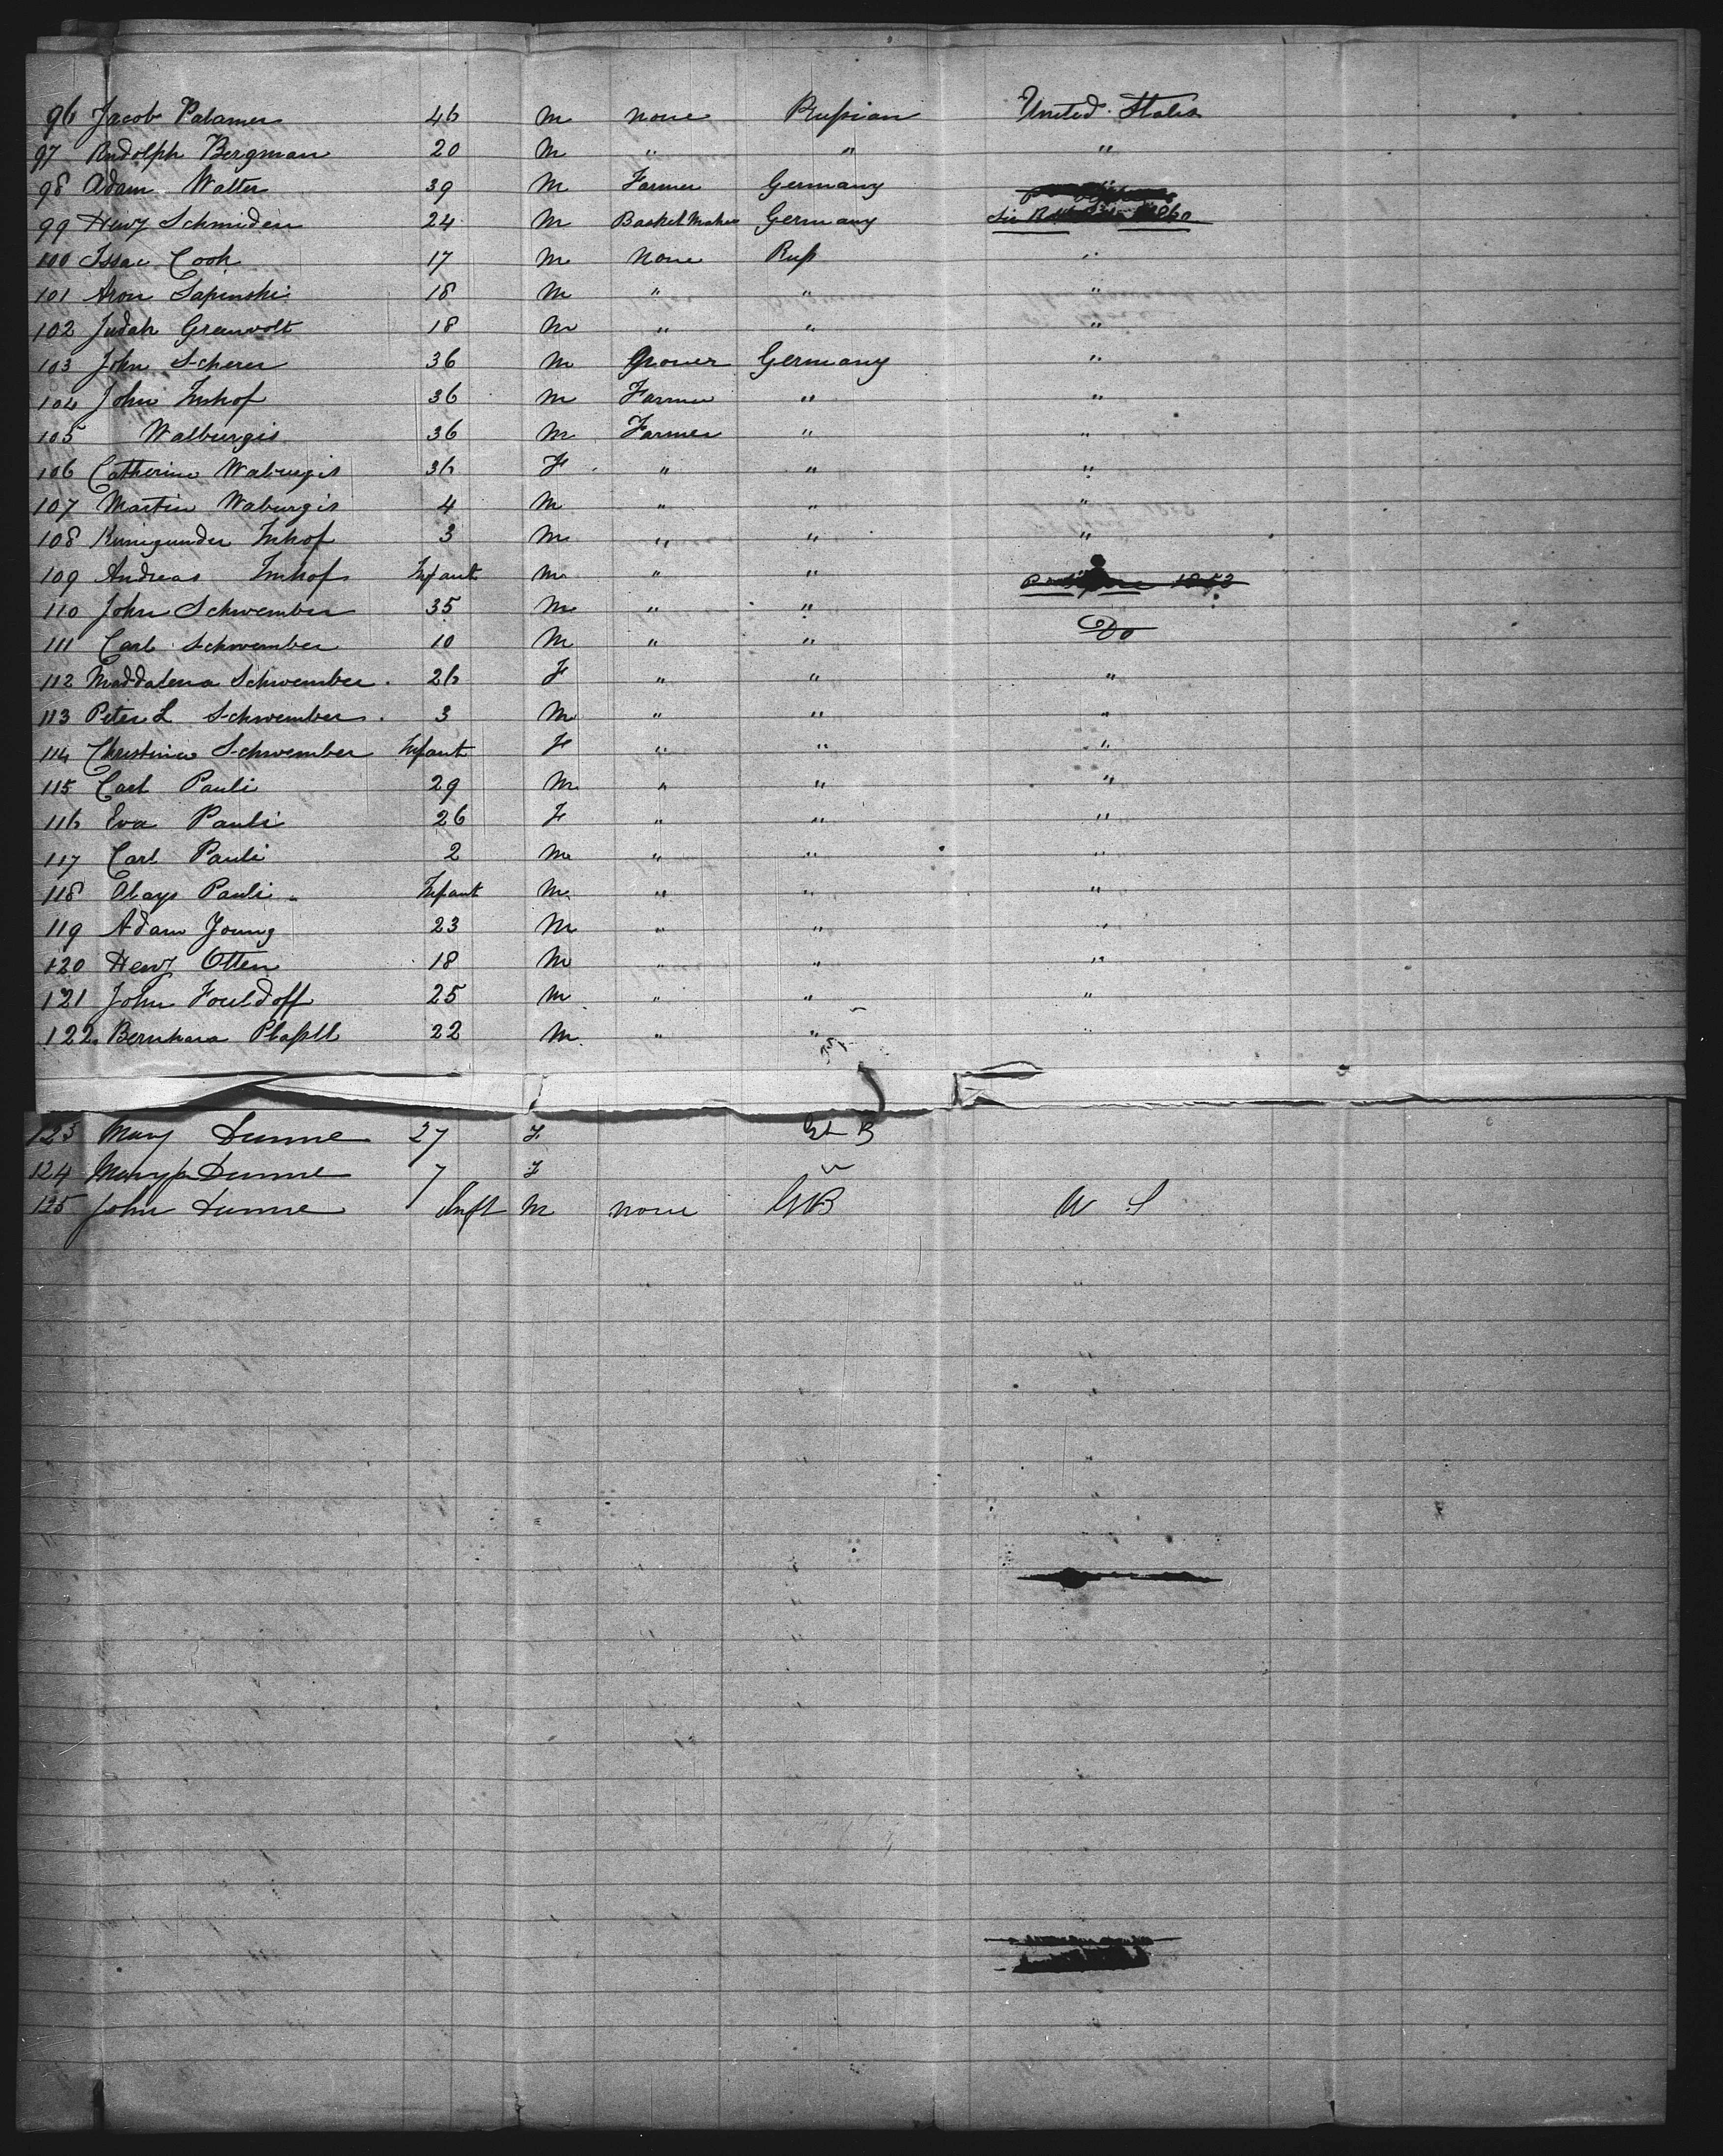 96 Jacob Palamer 46 M none Russian United States
97 Rudolph Bergman 20 M " " "
98 Adam Walter 39 M Farmer Germany
99 Henry Schmiden 24 M Basket Maker Germany
100 Issac Cook 17 M None Russ "
101 Aron Sapinski 18 M " " "
102 Judah Greenwolt 18 M " " "
103 John Scherer 36 M Grocer Germany "
104 John Imhof 36 M Farmer " "
105 Walburgis 36 M Farmer " "
106 Catherine Waburgis 36 F " " "
107 Martin Waburgis 4 M " " "
108 Kunigunder Imhof 3 M " " "
109 Andreas Imhof Infant M " " 1853
110 John Schwember 35 M " "
111 Carl Schwember 10 M " " Do
112 Maddalena Schwember 26 F " " "
113 Peter L Schwember 3 M " " "
114 Christina Schwember Infant F " " "
115 Carl Pauli 29 M " " "
116 Eva Pauli 26 F " " "
117 Carl Pauli 2 M " " "
118 Alays Pauli Infant M " " "
119 Adam Young 23 M " " "
120 Henry Otten 18 M " " "
121 John Fouldoff 25 M " " "
122 22 M " " "
123 Mary Dunne 27 F Gt B
124 Dunne 7 F "
125 John Dunne Inft M none GB U S